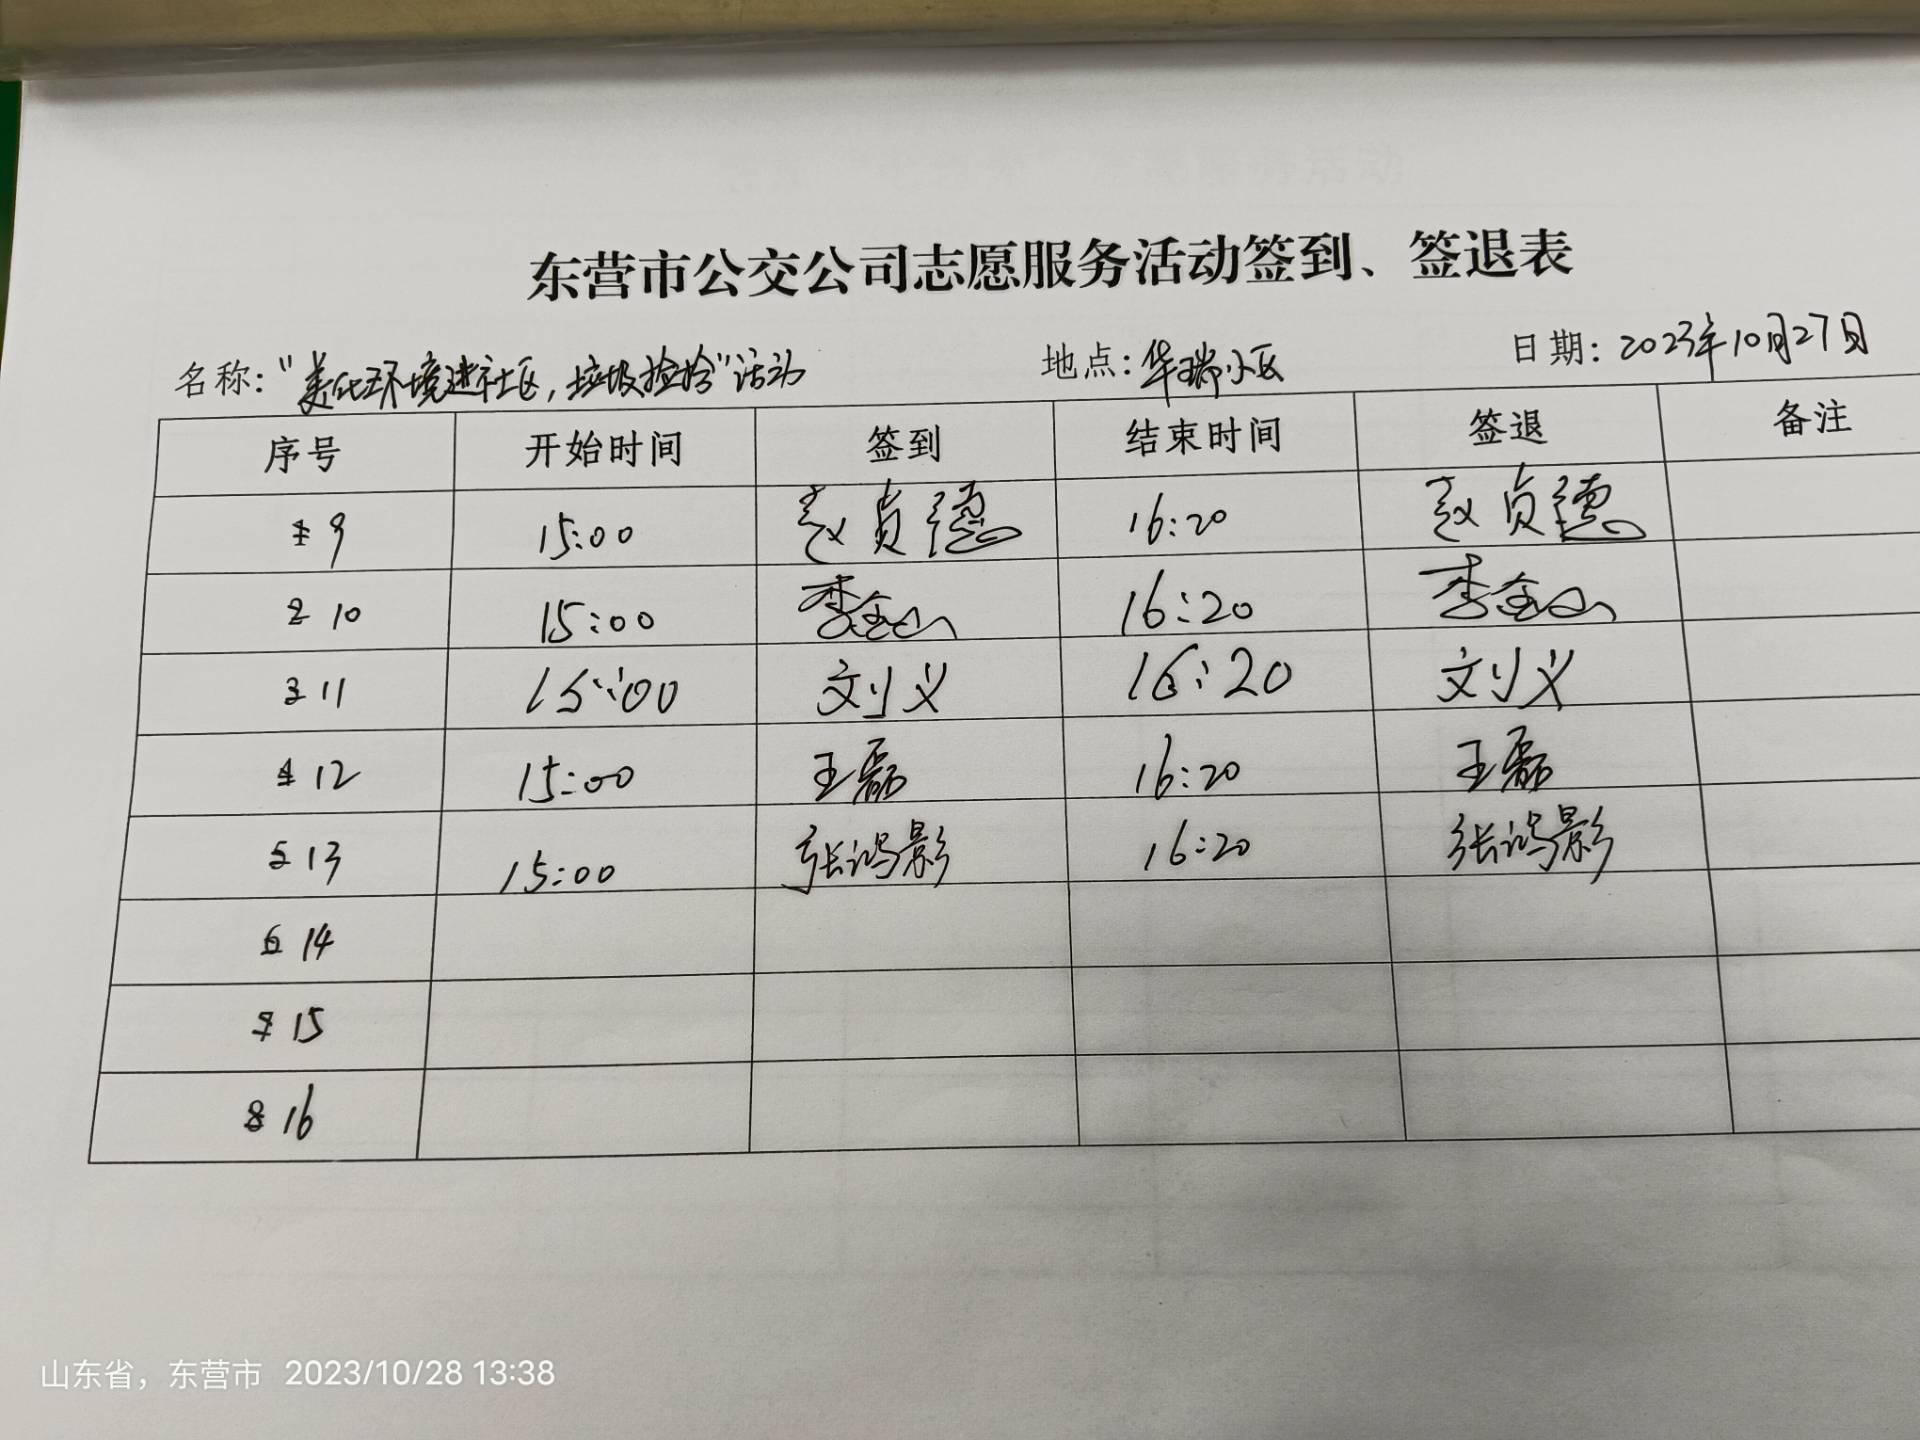 东营市公交公司志愿服务活动签到、签退表
名称:"美化环境进社区,垃圾捡拾"活动 地点:华瑞小区 日期:2023年10月27日
序号 开始时间 签到 结束时间 签退 备注
1 9 15:00 赵贞德 16:20 赵贞德
2 10 15:00 李金山 16:20 李金山
3 11 15:00 刘义 16:20 刘义
4 12 15:00 王磊 16:20 王磊
5 13 15:00 张鸿影 16:20 张鸿影
6 14
7 15
8 16
山东省，东营市 2023/10/28 13:38